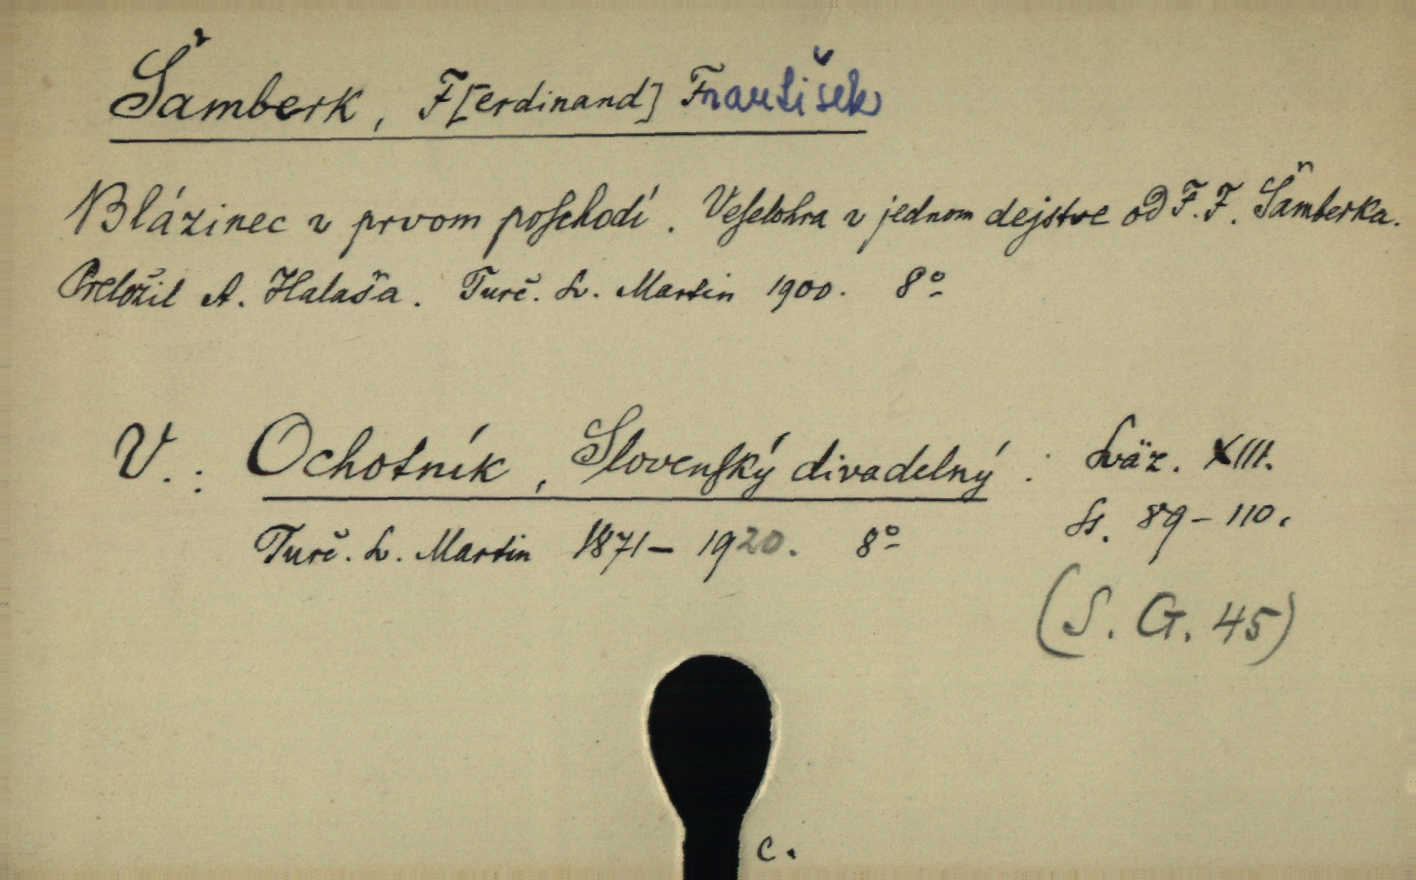 Šamberk, F[erdinand] František
Blázinec v prvom poschodí. Veselohra v jednom dejstve od F. F. Šamberka.
Preložil A. Halaša. Turč. Sv. Martin 1900. 8º
V.: Ochotník, Slovenský divadelný: Sväz. XIII.
Turč. Sv. Martin 1871–1920. 8º Ss. 89–110.
(S. G. 45)
c.